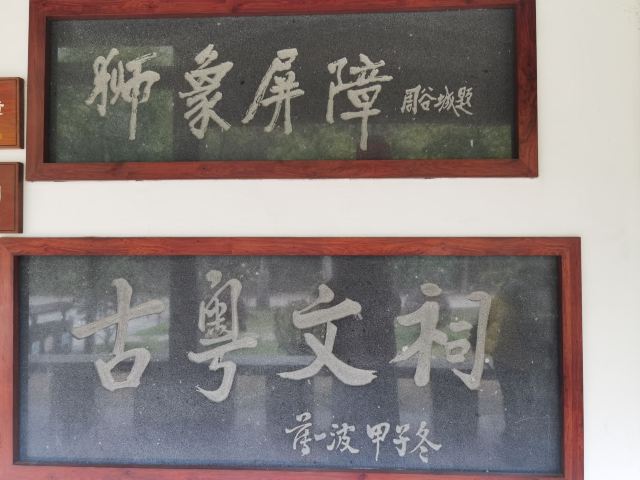 狮象屏障 周谷城题
古粤文祠
薄一波 甲子冬